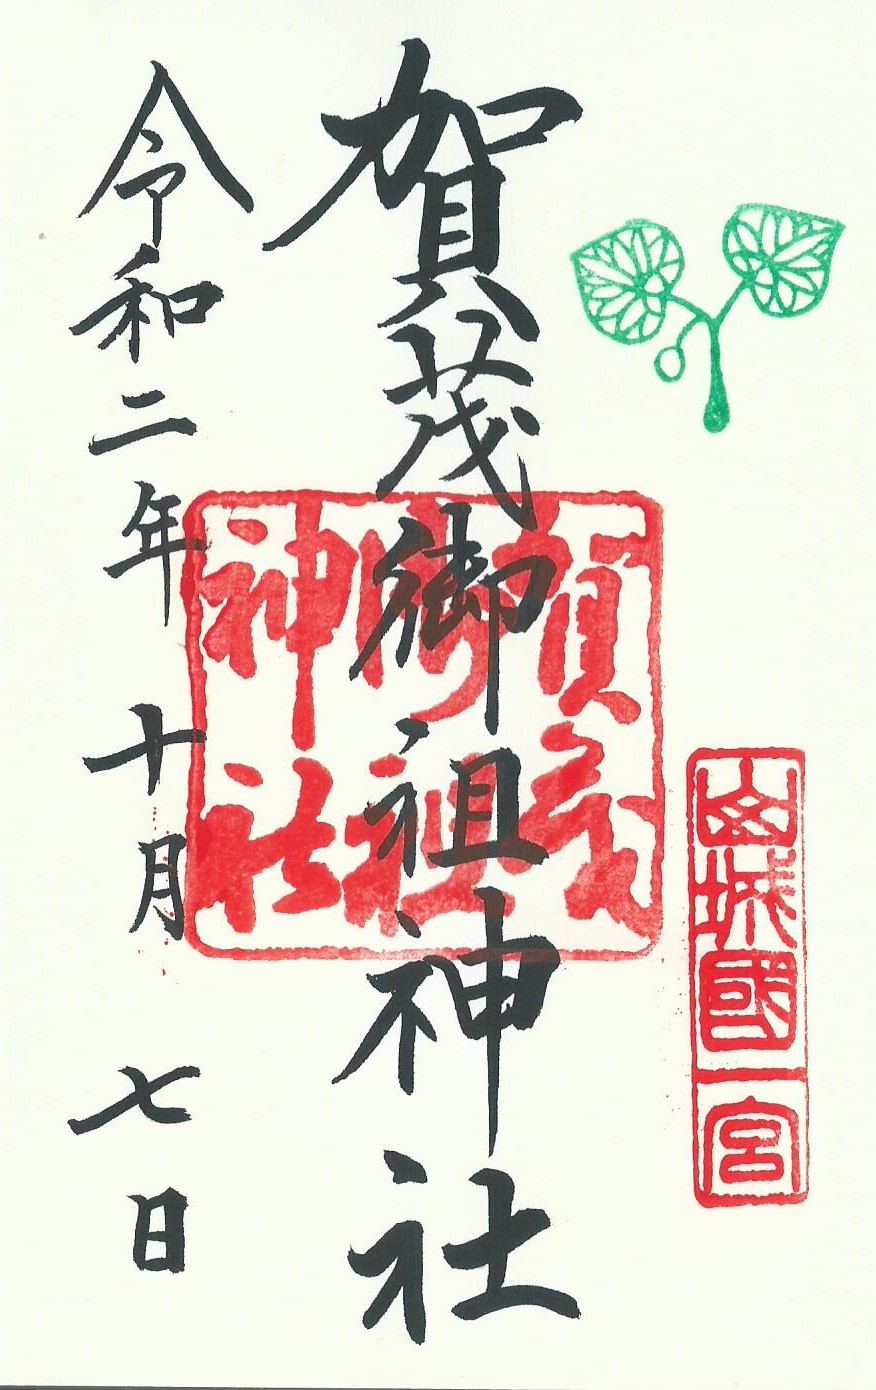 山城國一宮
賀茂御祖神社
賀茂
御祖
神社
令和二年 十月 七日